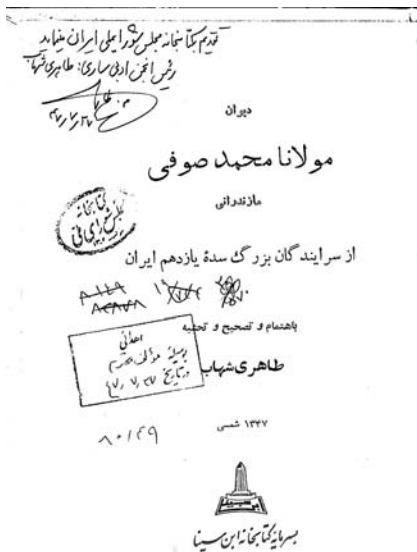 تقدیم بکتابخانه مجلس شورایملی ایران مینماید
رئیس انجمن ادبی ساری: طاهری شهاب
۴۷/۷/۲۷
دیوان
مولانا محمد صوفی
مازندرانی
کتابخانه
مجلس شورای ملی
از سرایندگان بزرگ سدهٔ یازدهم ایران
باهتمام و تصحیح و تحشیه
طاهری شهاب
اهدائی
بوسیله مؤلف محترم
در تاریخ ۴۷/۷/۲۷
۱۳۴۷ شمسی
۸۰۱۴۹
بسرمایه کتابخانه ابن سینا